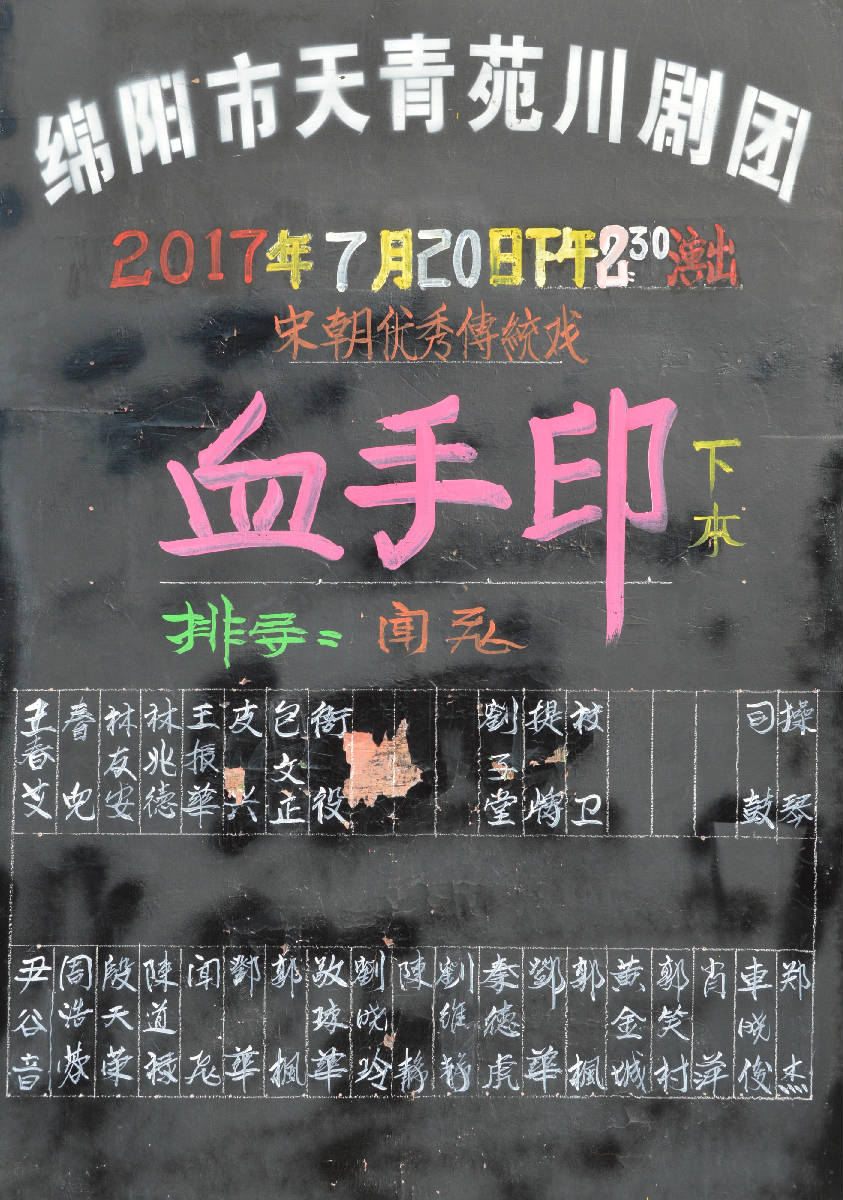 绵阳市天青苑川剧团
2017年7月20日下午2:30演出
宋朝优秀傳統戏
血手印
下本
排导：闻
王春艾 春兒 林友安 林兆德 王振華 皮兴 包文正 衙役 劉子堂 提牌 校卫 司鼓 操琴
尹谷音 周浩 殷天荣 陳道 闻 鄧華 郭楓 敬琼華 劉晓玲 陳静 劉維静 秦德虎 鄧華 郭楓 黄金城 郭笑村 肖萍 車晓俊 郑杰